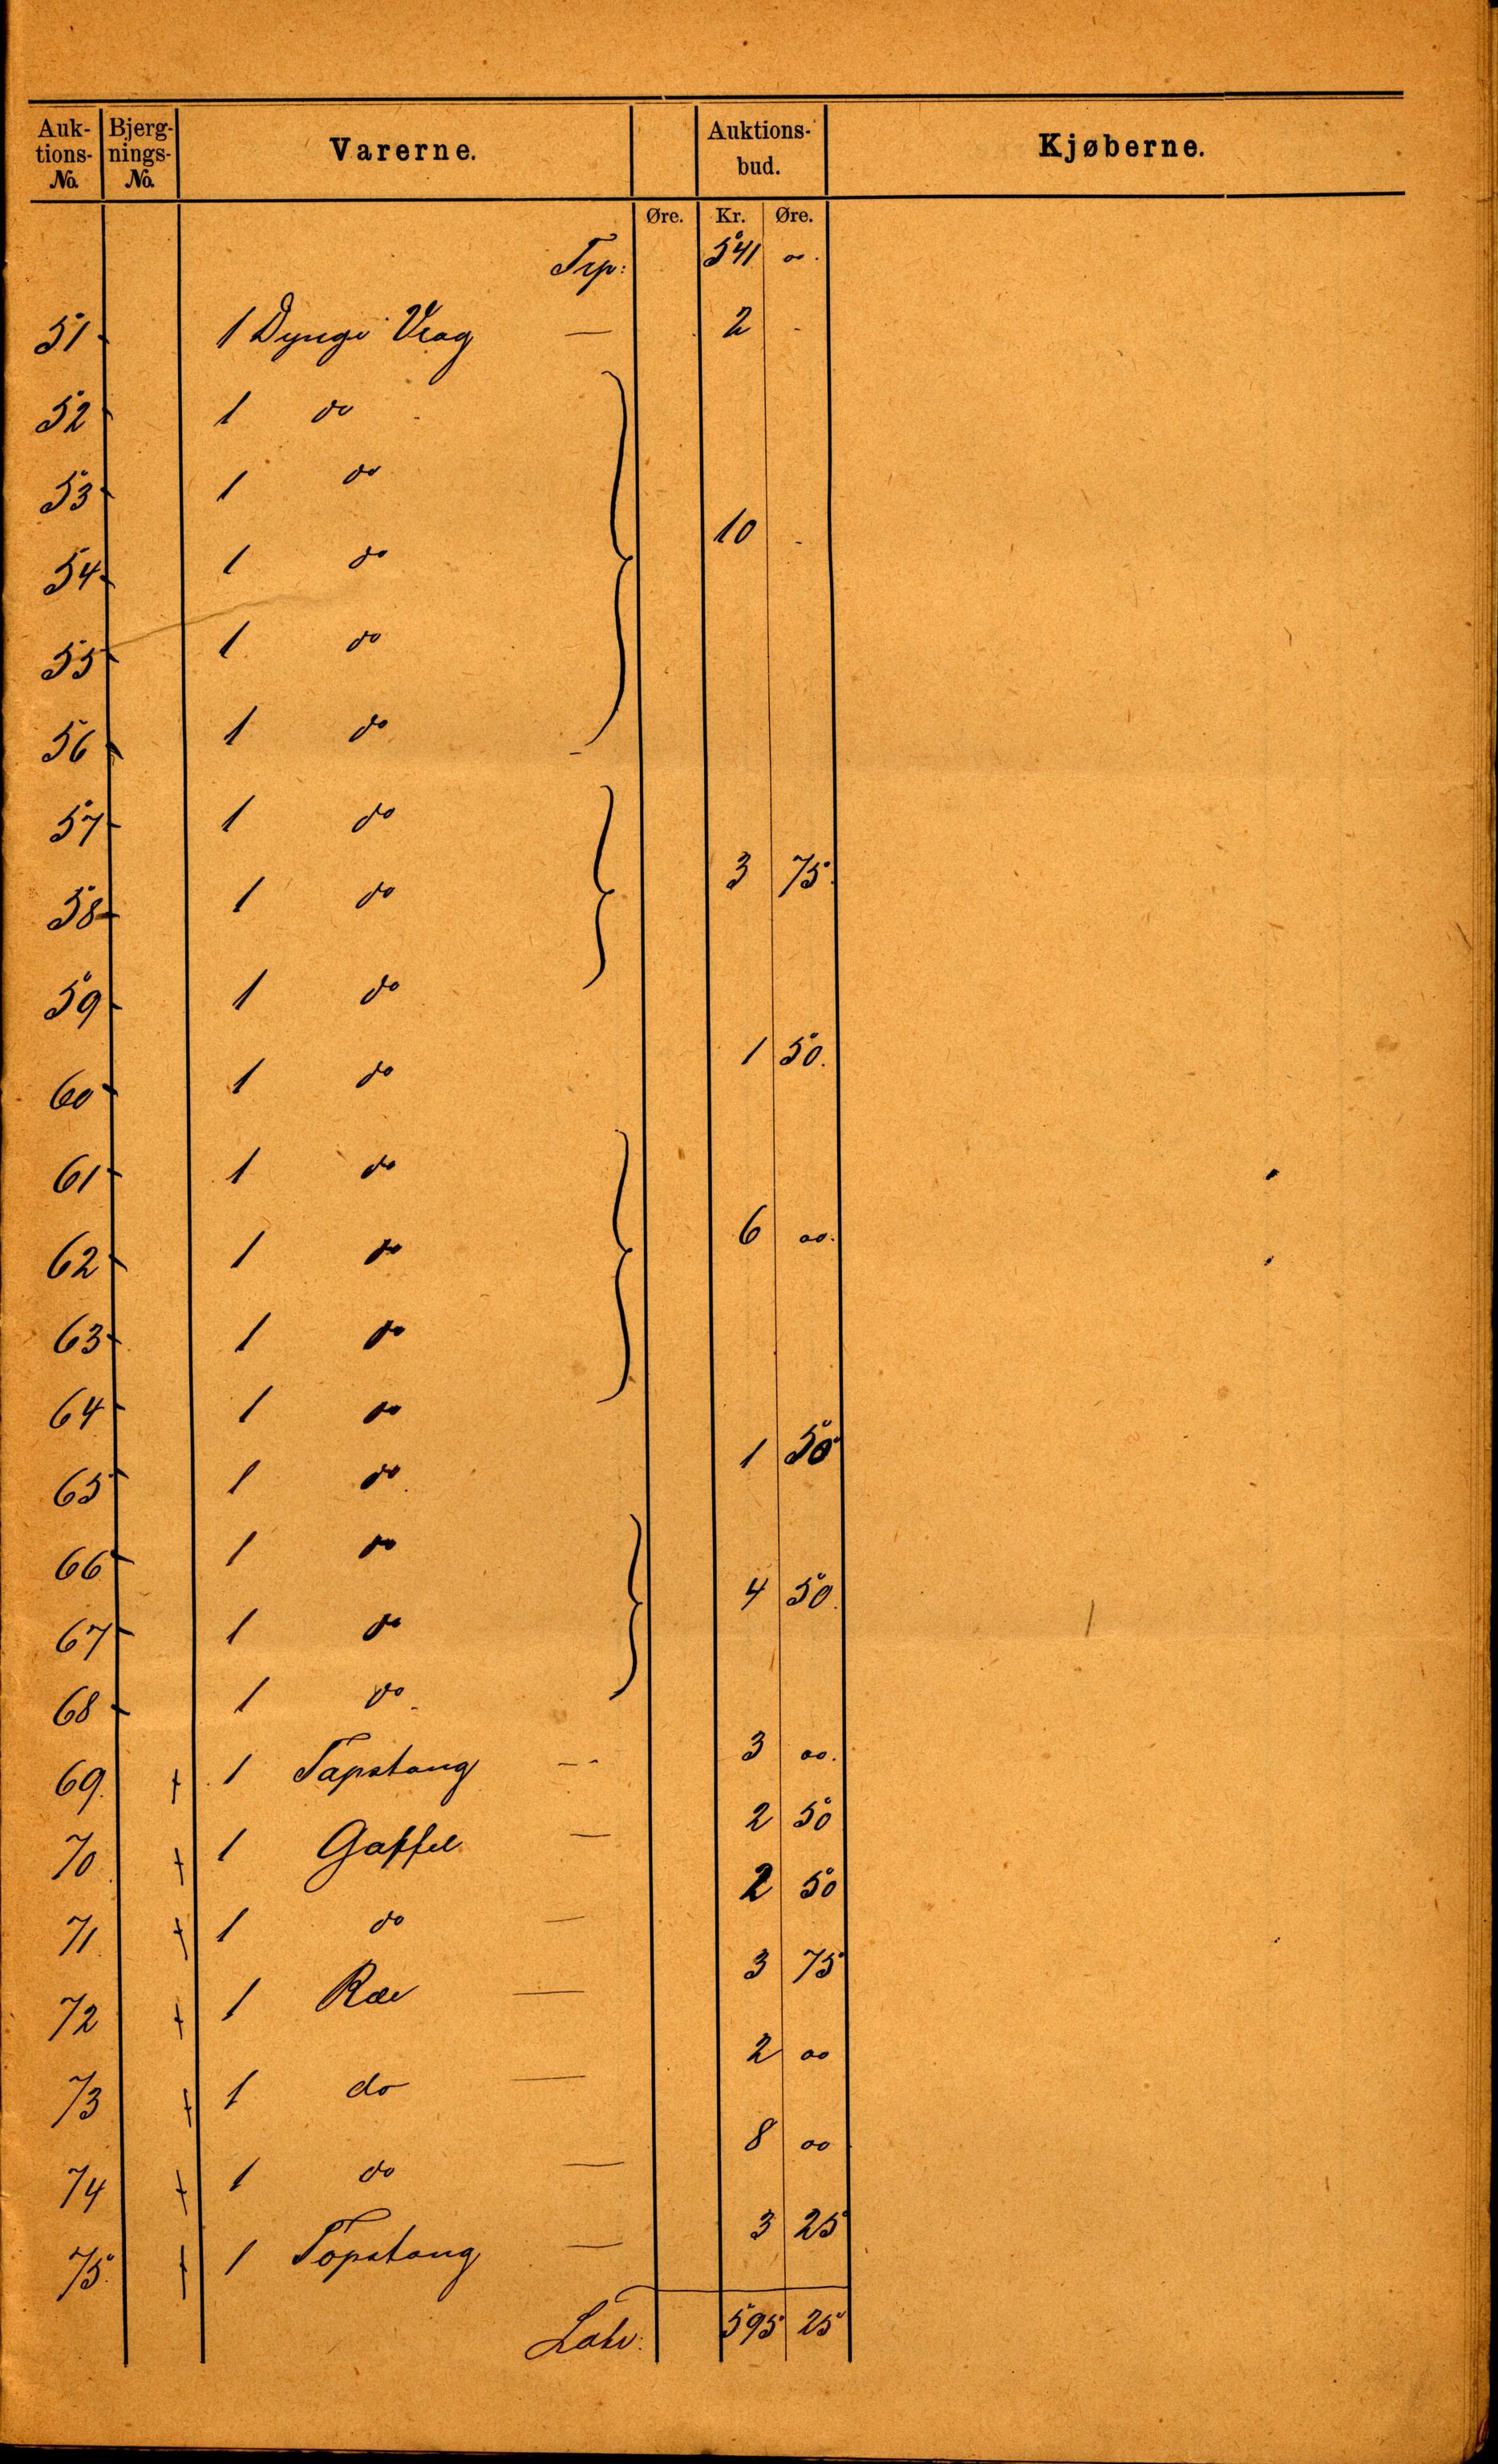 Auk-tions-No. Bjerg-nings-No. Varerne. Auktions-bud. Kjøberne.
Øre. Kr. Øre.
Trp: 541 00.
51 1 Dynge Vrag — 2 -
52 1 do
53 1 do
10 -
54 1 do
55 1 do
56 1 do
57 1 do
3 75.
58 1 do
59 1 do
1 50.
60 1 do
61 1 do
6 00.
62 1 do
63 1 do
64 1 do
1 50
65 1 do
66 1 do
4 50.
67 1 do
68 1 do
69. + 1 Tapstang — 3 00.
70 + 1 Gaffel — 2 50
71. + 1 do — 2 50
72 + 1 Raa — 3 75
73 + 1 do — 2 00
74 + 1 do — 8 00
75. + 1 Topstang — 3 25
Latr: 595 25